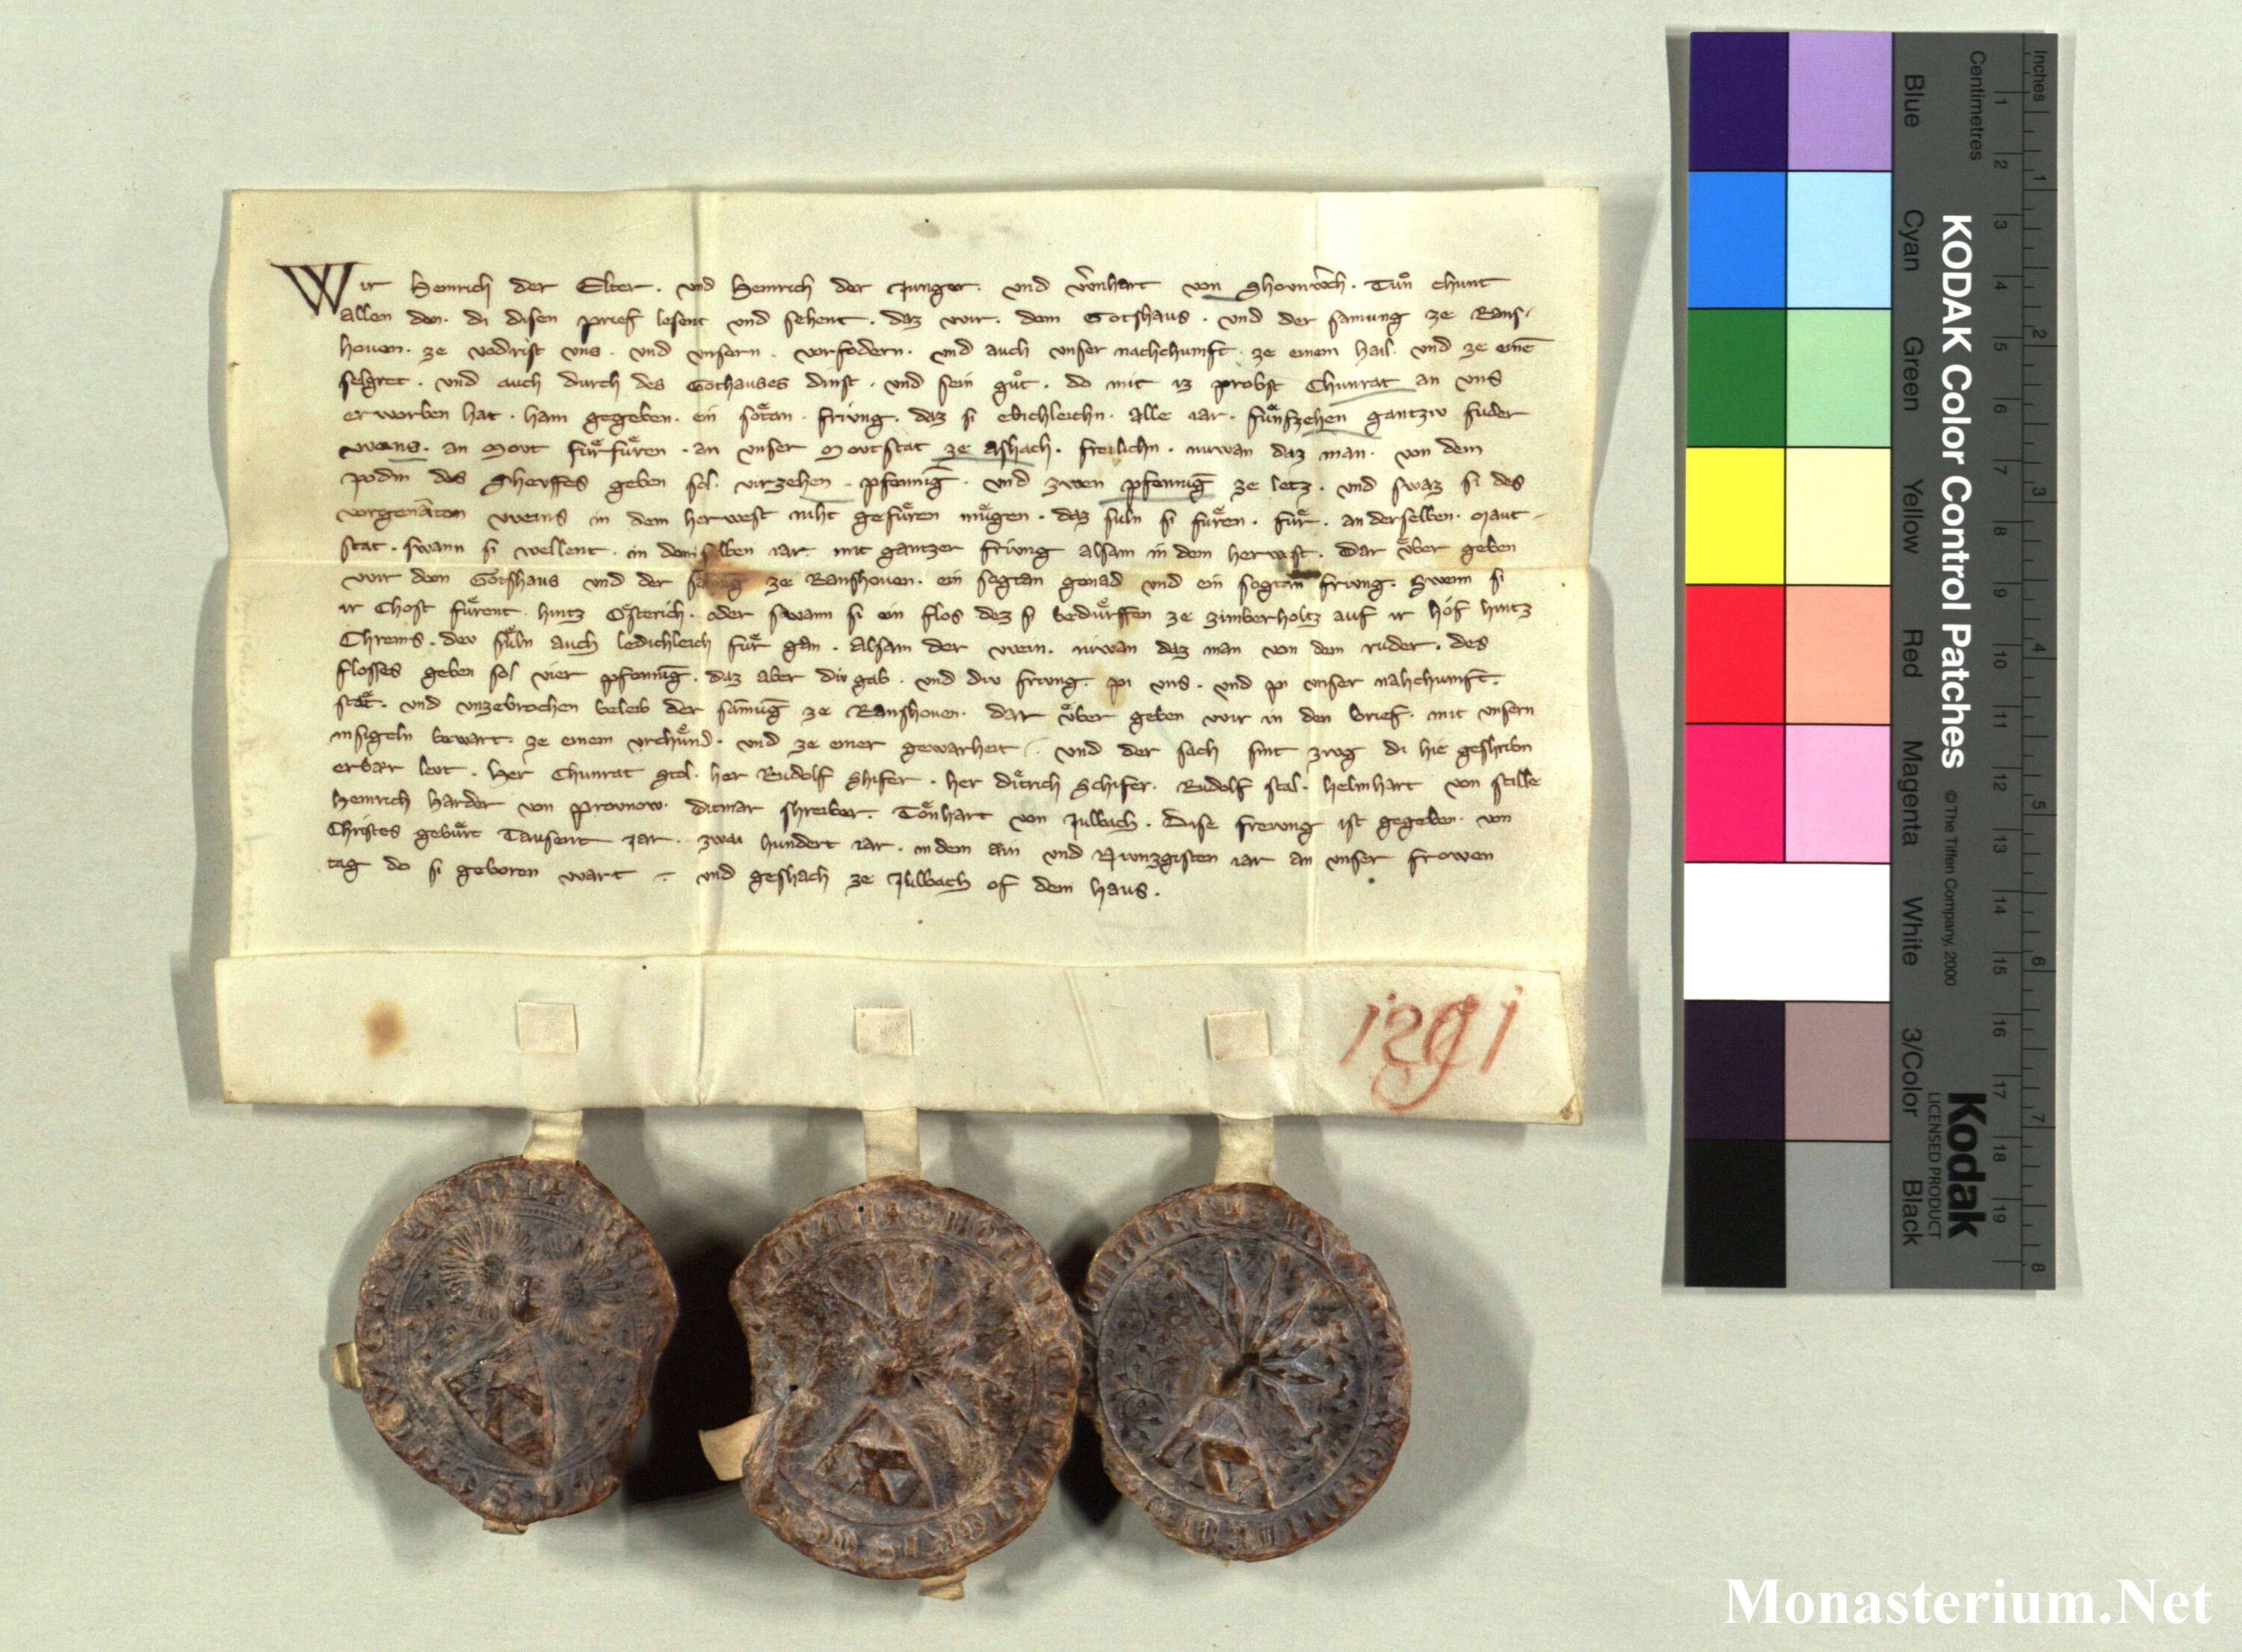 Wir Heinrich der Elter. vnd Heinrich der Junger. vnd von Tuͦn chunt
allen den. di disen prief lesent vnd sehent. daz wir. dem Gotshaus. vnd der samung ze Rans-
houen. ze vodrist vns. vnd vnsern. vorfodern. vnd auch vnser nachchumft. ze einem hail. vnd ze eine̅
selgret. vnd auch durch des Gothauses dinst. vnd sein guͦt. do mit iz probst Chunrat an vns
erworben hat. ham gegeben. ein soͤtan. friung. daz si ebichleichn. alle iar. fuͤnfzehen gantziv fuder
weins. an Mout fuͤrfuͤren. an vnser Moutstat ze Ashach. freilichn. nuwan daz man. von dem
podm des Sheffes geben sol. virzehen. pfenni̅g. vnd zwen pfenni̅g ze letz. vnd swaz si des
vorgena̅ten weins in dem herwest niht gefuͤren muͤgen. daz suln si fuͤren. fuͤr. an derselben. Maut-
stat. swann si wellent. in dem selben iar. mit gantzer friung alsam in dem herwest. Dar vͤber geben
wir dem Gotshaus vnd der ze Ranshouen. ein sogtan genad vnd ein sogtan friung. Swenn si
ir Chost fuͤrent. hintz Oͤsterich. oder swann si ein flos dez si beduͤrffen ze zimberholtz auf ir hof hintz
Chrems. dev suͤln auch ledichleich fuͤr gan. alsam der wein. niwan daz man von dem ruder. des
flosses geben sol vier pfenni̅g. daz aber div gab. vnd div friung. pi vns. vnd pi vnser nahchumft.
staͤt. vnd vnzebrochen beleib der samu̅g ze Ranshouen. dar vͤber geben wir in den brief. mit vnsern
insigeln bewart. ze einem vrchuͤnd. vnd ze einer gewarheit. vnd der sach sint zivg di hie geshribn
erbær levt. Her Chunrat Stal. her Rudolf Shifer. her Ditrich Schifer. Rudolf stal. helmhart von stille
Heinrich Harder von Provnow. Ditmar shreiber. von Julbach. Dise freiung ist gegeben. von
Christes gebuͤrt Tausent Jar. zwai hundert iar. in dem ain vnd Niunzgisten iar an vnser frowen
tag do si geboren wart - vnd geshach ze Julbach of dem haus.
1291
Inches
Centimetres
Blue Cyan Green Yellow Red Magenta White 3/Color Black
KODAK Color Control Patches
© The Tiffen Company, 2000
Kodak
LICENSED PRODUCT
1 2 3 4 5 6 7 8
1 2 3 4 5 6 7 8 9 10 11 12 13 14 15 16 17 18 19
Monasterium.Net